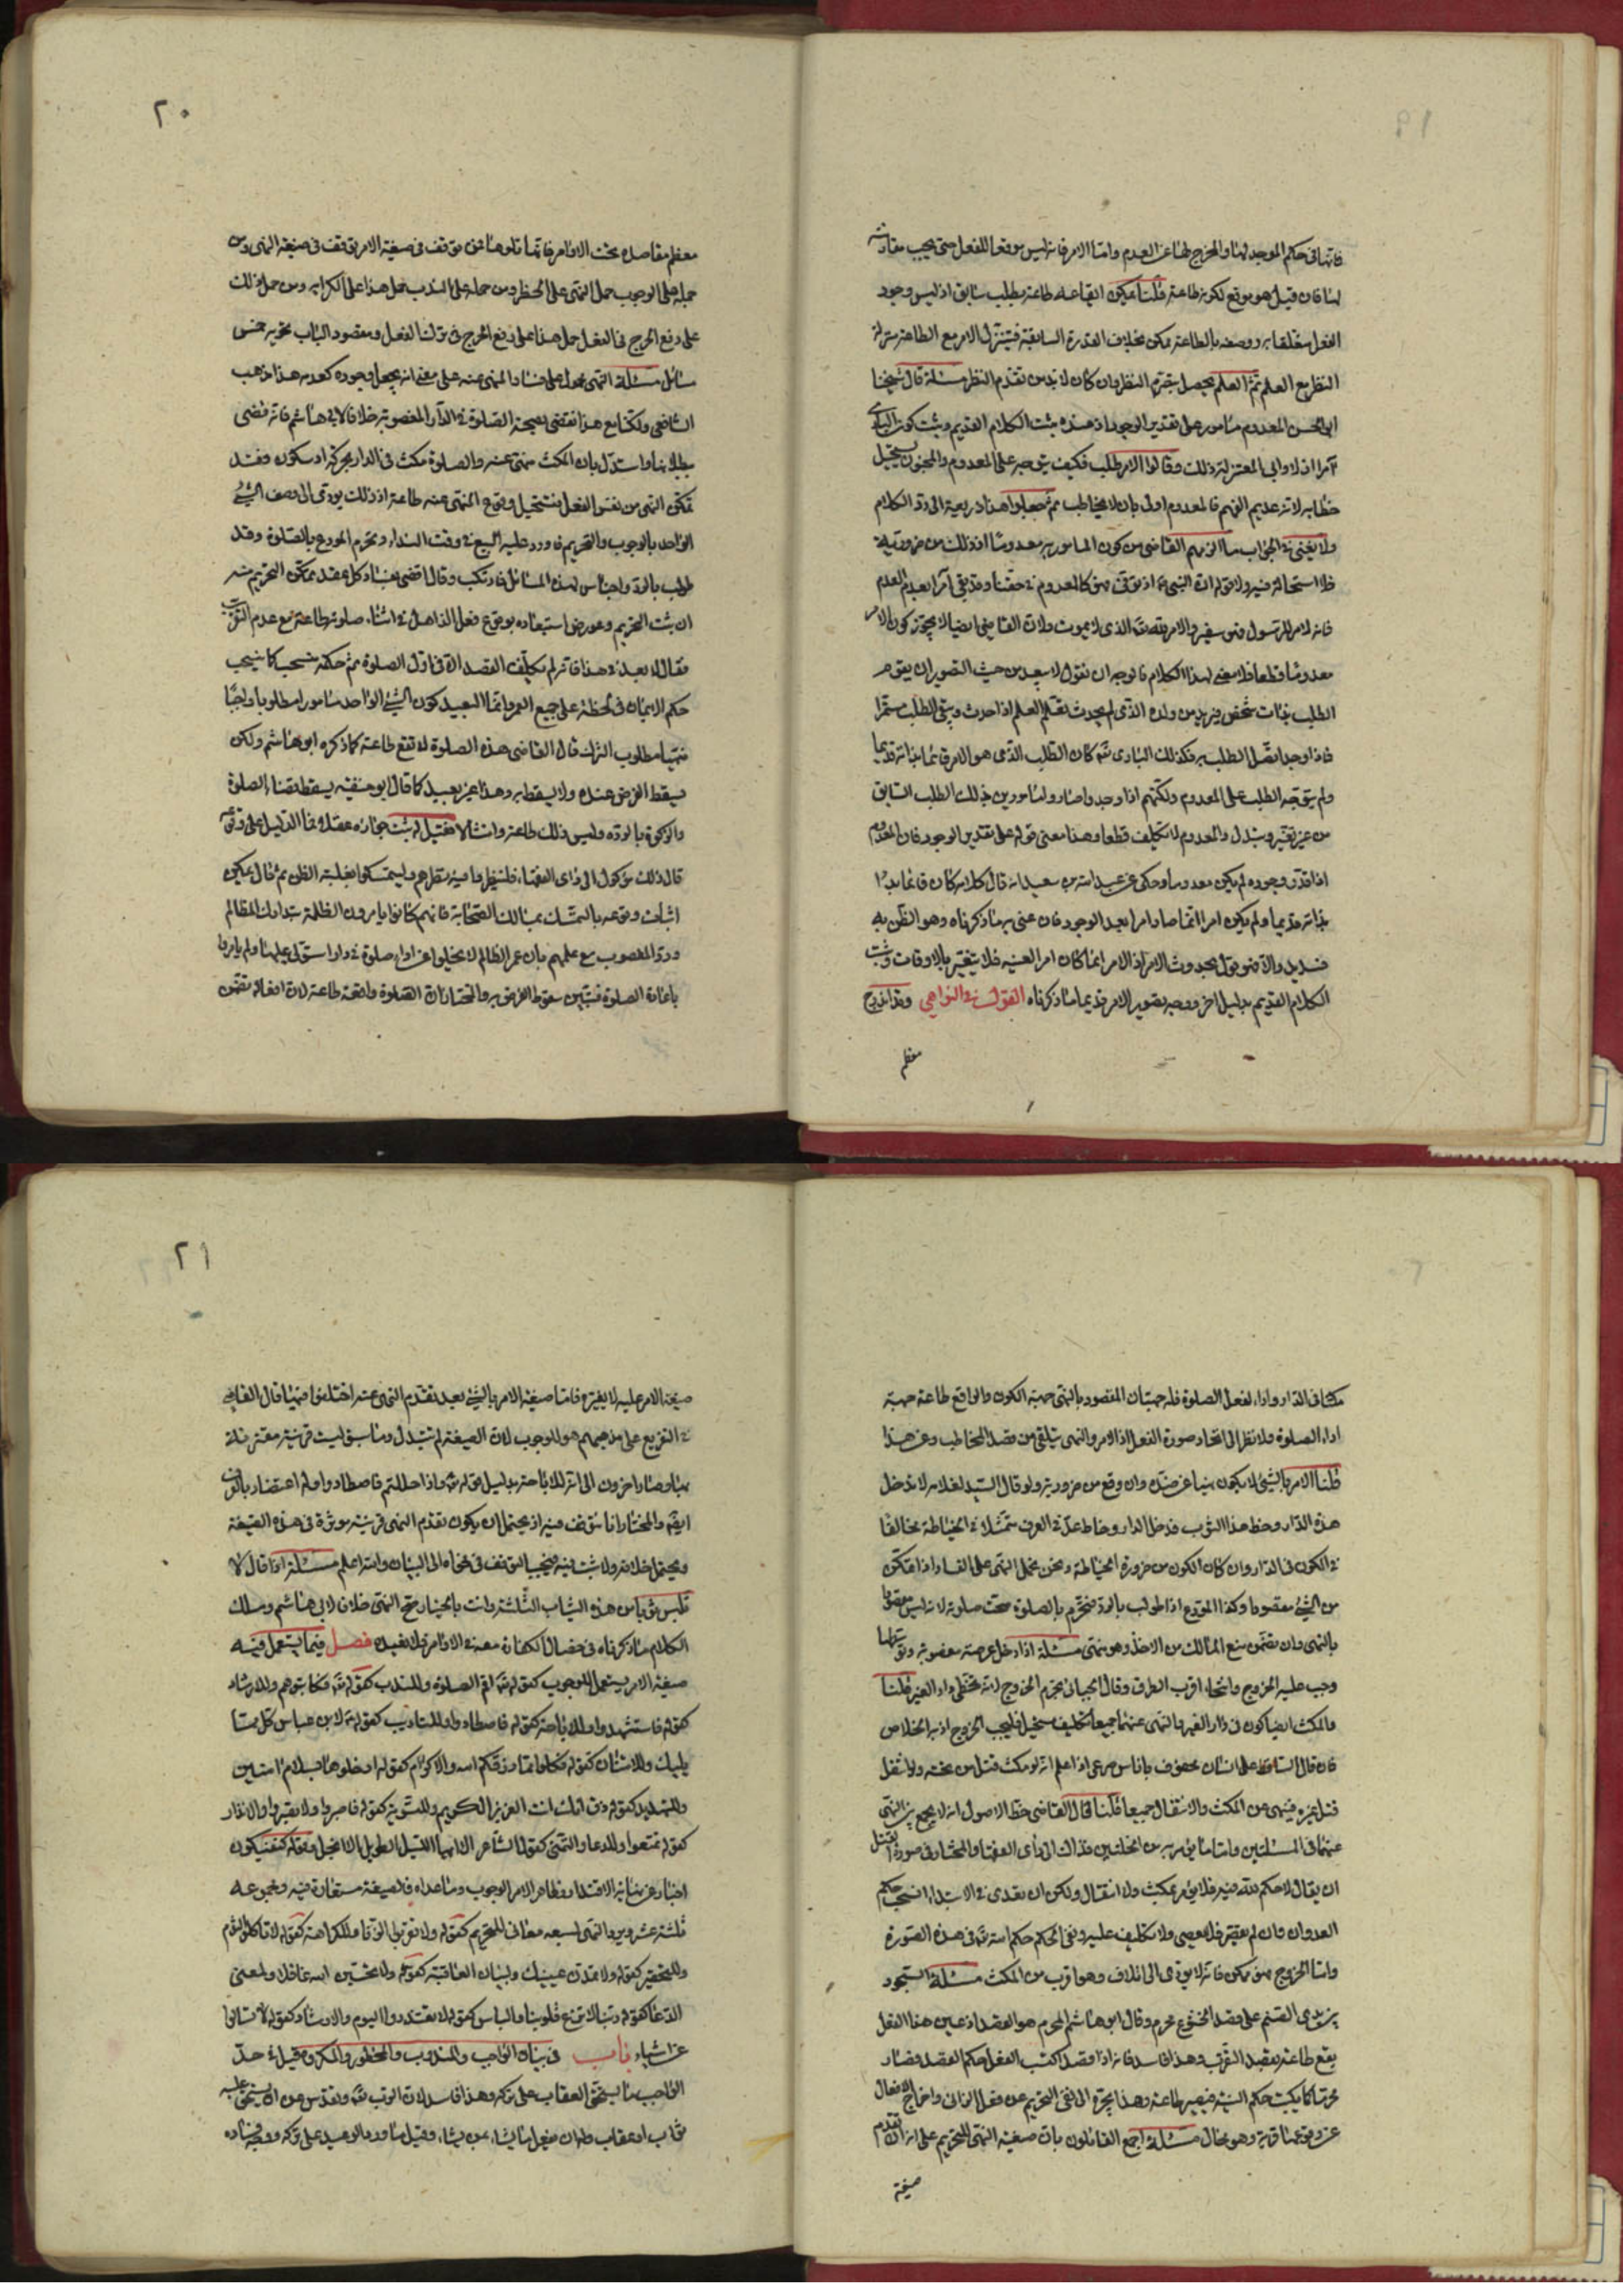 ١٩
فانها فى حكم الموجد لها والمخرج لها عن العدم واما الامر فانه ليس موقعا للفعل حتى يجب مقارنته
لها فان قيل هو موقع لكونه طاعة قلنا يمكن ايقاعه طاعة بطلب سابق اذ ليس وجود
الفعل متعلقا به ووصفه بالطاعة ممكن بخلاف القدرة السابقة فيتنزل الامر مع الطاعة منزلة
النظر مع العلم ثم العلم يحصل بتصرم النظر وان كان لا بد من تقدم النظر مسئلة قال شيخنا
ابى الحسن المعدوم مامور على تقدير الوجود اذ عنده يثبت الكلام القديم ويثبت كون البارى
آمرا ازلا وابى المعتزلة ذلك وقالوا الامر طلب فكيف يتوجه على المعدوم والمجنون يستحيل
خطابه لانه عديم الفهم فالمعدوم اولى بان لا يخاطب ثم جعلوا هذا ذريعة الى رد الكلام
ولا يغنى فى الجواب ما الزمهم القاضى من كون المامور به معدوما اذ ذلك من ضروريته
فلا استحالة فيه ولا قوله ان النبى ع اذ توفى فهو كالمعدوم فى حقنا وقد بقى آمرا بعد العدم
فانه لا امر للرسول فهو سفير والامر لله تعالى الذى لا يموت ولان القاضى ايضا لا يجوز كون الامر
معدوما قطعا فلا معنى لهذا الكلام فالوجه ان نقول لا يبعد من حيث التصوير ان يقوم
الطلب بذات شخص يريد من ولده الذى لم يحدث تعلم العلم اذا حدث ويبقى الطلب مستمرا
فاذا وجد اتصل الطلب به فكذلك البارى تع كان الطلب الذى هو الامر قائما بذاته قديما
ولم يتوجه الطلب على المعدوم ولكنهم اذا وجدوا صاروا مامورين بذلك الطلب السابق
من غير تغير وتبدل والمعدوم لا تكليف قطعا وهذا معنى قوله على تقدير الوجود فان المعدوم
اذا قدر وجوده لم يكن معدوما وحكى عن عبد الله بن سعيد انه قال كلامه كان قائما
بذاته قديما ولم يكن امرا انما صار امرا بعد الوجود فان عنى به ما ذكرناه وهو الظن به
فسديد والا فهو قول بحدوث الامر اذ الامر انما كان امرا لعينه فلا يتغير بالاوقات وثبت
الكلام القديم بدليل اخر ووجه تصوير الامر قديما ما ذكرناه القول فى النواهى وقد اندرج
معظم
٢٠
معظم مقاصده تحت الاوامر فانما تلوها فمن توقف فى صيغة الامر توقف فى صيغة النهى ومن
حمله على الوجوب حمل النهى على الحظر ومن حمله على الندب حمل هذا على الكراهة ومن حمل ذلك
على رفع الحرج فى الفعل حمل هذا على رفع الحرج فى ترك الفعل ومقصود الباب تحويه خمس
مسائل مسئلة النهى محمول على فساد المنهى عنه على معنى انه يجعل وجوده كعدمه هذا مذهب
الشافعى ولكنا مع هذا نقضى بصحة الصلوة فى الدار المغصوبة خلافا لابى هاشم فانه قضى
ببطلانها واستدل بان المكث منهى عنه والصلوة مكث فى الدار بحركة او سكون وقد
تمكن النهى من نفس الفعل فتستحيل وقوع المنهى عنه طاعة اذ ذلك يودى الى وصف الشئ
الواحد بالوجوب والتحريم فاورد عليه البيع فى وقت النداء وتحرم المودع بالصلوة وقد
طولب بالرد واجناس لهذه المسائل فارتكب وقال اقضى بفساد كل عقد يمكن التحريم منه
ان يثبت التحريم وعورض استبعاده بوقوع فعل الذاهل فى اثناء صلوته طاعة مع عدم التقرب
فقال لا بعد فى هذا فانه لم يكلف القصد الا فى اول الصلوة ثم حكمه منسحب كما ينسحب
حكم الايمان فى لحظة على جميع العمر وانما البعيد كون الشئ الواحد مامورا مطلوبا واجبا
منهيا مطلوب الترك قال القاضى هذه الصلوة لا تقع طاعة كما ذكره ابو هاشم ولكن
يسقط الفرض عنده ولا يسقط به وهذا غير بعيد كما قال ابو حنيفة يسقط قضاء الصلوة
والزكوة بالردة وليس ذلك طاعة وامثالا فقيل له يثبت جوازه عقلا فما الدليل على وقوعه
قال ذلك موكول الى راى الفقهاء فلينظروا فيه نظرهم وليتمسكوا بغلبة الظن ثم قال يمكن
اثبات وقوعه بالتمسك بمسالك الصحابة فانهم كانوا يامرون الظلمة بتدارك المظالم
ورد المغصوب مع علمهم بان عمر الظالم لا يخلوا عن اداء صلوة فى دار استولى عليها ولم يامروا
باعادة الصلوة فتبين سقوط الفرض به والمختار ان الصلوة واقعة طاعة لان افعاله تضمن
مكثا فى الدار واداء لفعل الصلوة فله جهتان المقصود بالنهى جهة الكون والواقع طاعة جهة
اداء الصلوة ولا نظر الى اتحاد صورة الفعل اذ الامر والنهى يتلقى من قصد المخاطب وعن هذا
قلنا الامر بالشئ لا يكون نهيا عن ضده وان وقع من ضروريته ولو قال السيد لغلامه لا تدخل
هذه الدار وخط هذا الثوب فدخل الدار وخاط عد فى العرف ممتثلا فى الخياطة مخالفا
فى الكون فى الدار وان كان الكون من ضرورة الخياطة ونحن نحمل النهى على الفساد اذا تمكن
من الشئ مقصودا وكذا المودع اذا طولب بالرد فتحرم بالصلوة صحت صلوته لانه ليس مقصودا
بالنهى وان تضمن منع المالك من الاخذ وهو منهى مسئلة اذا دخل عرصة مغصوبة
وجب عليه الخروج وانتحاء اقرب الطرق وقال الجبائى يحرم الخروج لانه تخطى دار الغير قلنا
فالمكث ايضا كون فى دار الغير فالنهى عنهما جميعا تكليف مستحيل فليجب الخروج اذ به الخلاص
فان قال الساقط على انسان محفوف باناس صرعى اذا علم انه لو مكث قتل من تحته ولو انتقل
قتل غيره فينهى عن المكث والانتقال جميعا قلنا قال القاضى حظ الاصول انه لا يجمع بين النهى
عنهما فى المسئلتين واما ما يؤمر به من الخلتين فذاك الى راى الفقهاء والمختار فى صورة القتل
ان يقال لا حكم لله فيه فلا يؤمر بمكث ولا انتقال ولكن ان تعدى فى الابتداء انسحب حكم
العدوان وان لم يقصر فلا يعصى ولا تكليف عليه ونفى الحكم حكم الله تع فى هذه الصورة
واما الخروج فهو ممكن فانه لا يودى الى اتلاف وهو اقرب من المكث مسئلة السجود
بين يدى الصنم على قصد الخشوع محرم وقال ابو هاشم المحرم هو القصد اذ عين هذا الفعل
يقع طاعة بقصد التقرب وهذا فاسد فانه اذا قصد اكتسب الفعل حكم القصد فصار
محرما كما يكتسب حكم النية فيصير طاعة وهذا يجره الى نفى التحريم عن فعل الزانى واخراج الافعال
عن وقوعها قربة وهو محال مسئلة اجمع القائلون بان صيغة النهى للتحريم على انه ان تقدم
صيغة
٢١
صيغة الامر عليه لا يغيره فاما صيغة الامر بالشئ بعد تقدم النهى عنه اختلفوا فيها قال القاضى
فى التفريع على مذهبهم هو للوجوب لان الصيغة لم تتبدل وما سبق ليست قرينة مقترنة
بها وصار اخرون الى انه للاباحة بدليل قوله تع واذا حللتم فاصطادوا وله اعتضاد بالعرف
ايضا والمختار انا نتوقف فيه اذ يحتمل ان يكون تقدم النهى قرينة موثرة فى هذه الصيغة
ويحتمل خلافه ولا ثبت فيه فيجب التوقف فى فحواه الى البيان والله اعلم مسئلة اذا قال لا
تلبس ثوبا من هذه الثياب الثلثة وانت بالخيار صح النهى خلافا لابى هاشم ومسلك
الكلام ما ذكرناه فى خصال الكفارة معه فى الاوامر فلا نعيده فصل فيما يستعمل فيه
صيغة الامر يستعمل للوجوب كقوله تع اقم الصلوة وللندب كقوله تع فكاتبوهم وللارشاد
كقوله فاستشهدوا وللاباحة كقوله فاصطادوا وللتاديب كقوله ع لابن عباس كل مما
يليك وللامتنان كقوله فكلوا مما رزقكم الله وللاكرام كقوله ادخلوها بسلام امنين
وللتهديد كقوله ذق انك انت العزيز الكريم وللتسوية كقوله فاصبروا ولا تصبروا والانذار
كقوله تمتعوا وللدعا والتمنى كقول الشاعر الا ايها الليل الطويل الا انجل وقوله كن فيكون
اخبار عن نهاية الاقتدار وظاهر الامر الوجوب وما عداه فالصيغة مستعارة فيه ومجموعه
ثلثة عشر ويرد النهى لسبعة معانى للتحريم كقوله ولا تقربوا الزنا وللكراهة كقوله لا تاكلوا الثوم
وللتحقير كقوله ولا تمدن عينيك ولبيان العاقبة كقوله ولا تحسبن الله غافلا ولمعنى
الدعا كقوله ربنا لا تزغ قلوبنا والياس كقوله لا تعتذروا اليوم والارشاد كقوله لا تسالوا
عن اشياء باب فى بيان الواجب والمندوب والمحظور والمكروه قيل فى حد
الواجب ما يستحق العقاب على تركه وهذا فاسد لان الرب تع يتقدس عن ان يستحق عليه
ثواب او عقاب وله ان يفعل ما يشاء بمن يشاء وقيل ما ورد الوعيد على تركه ووجه فساده